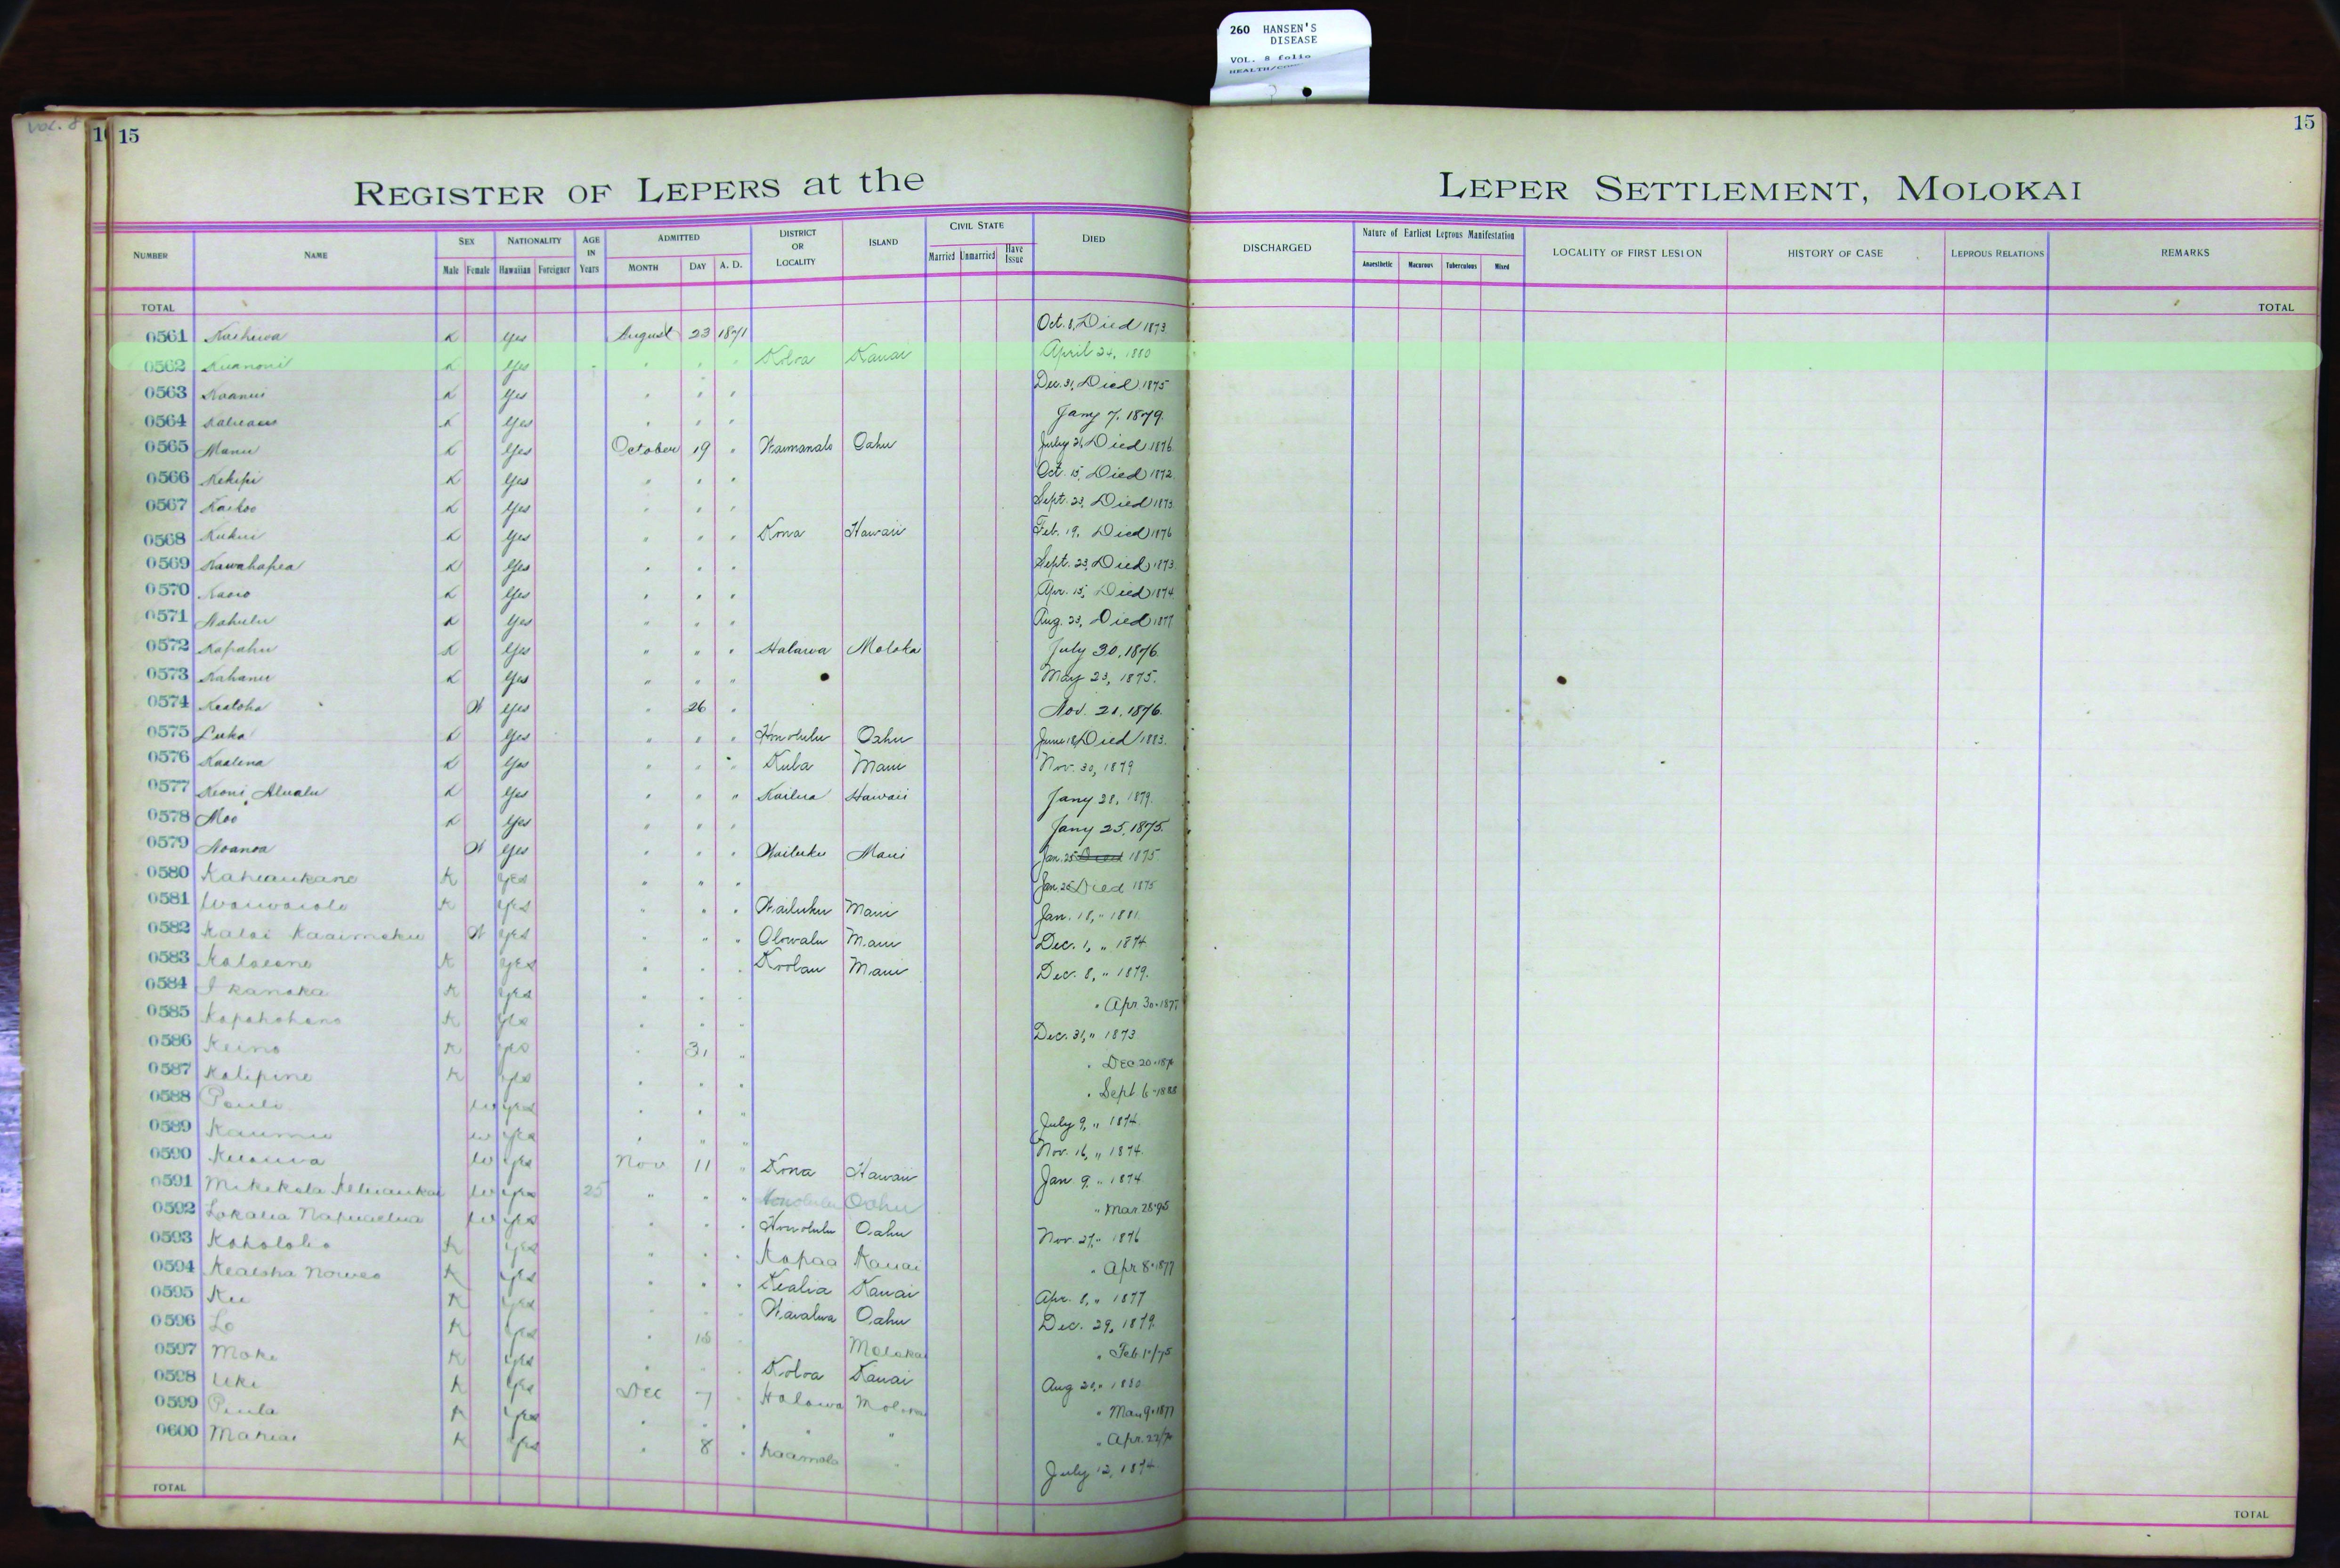 260 HANSEN'S
DISEASE
VOL. 8 folio
VOL. 8
15
15
REGISTER OF LEPERS at the LEPER SETTLEMENT, MOLOKAI
NUMBER NAME SEX NATIONALITY AGE IN Years ADMITTED DISTRICT OR LOCALITY ISLAND CIVIL STATE DIED DISCHARGED Nature of Earliest Leprous Manifestation LOCALITY OF FIRST LESION HISTORY OF CASE LEPROUS RELATIONS REMARKS
Male Female Hawaiian Foreigner MONTH DAY A. D. Married Unmarried Have Issue Anaesthetic Macurous Tuberculous Mixed
TOTAL TOTAL
0561 K Yes August 23 1871 Oct. 8, Died 1873
0562 K Yes " " " Koloa Kauai April 24, 1880
0563 K Yes " " " Dec. 31, Died 1875
0564 K Yes " " " Jany 7, 1879.
0565 Manu K Yes October 19 " Waimanalo Oahu July 21, Died 1876
0566 Kekipi K Yes " " " Oct. 15, Died 1872
0567 Kaikoo K Yes " " " Sept. 23, Died 1873
0568 Kukui K Yes " " " Kona Hawaii Feb. 19, Died 1876
0569 Kawahapea K Yes " " " Sept. 23, Died 1873
0570 K Yes " " " Apr. 15, Died 1874
0571 Nahulu K Yes " " " Aug. 23, Died 1877
0572 Kapahu K Yes " " " Halawa Moloka July 30, 1876
0573 Kahanu K Yes " " " May 23, 1875.
0574 Kealoha W Yes " 26 " Nov. 21, 1876.
0575 Luka K Yes " " " Honolulu Oahu June 18, Died 1883.
0576 Kaalena K Yes " " " Kula Maui Nov. 30, 1879
0577 Keoni Alualu K Yes " " " Kailua Hawaii Jany 28, 1879.
0578 Moo K Yes " " " Jany 25, 1875.
0579 Noanoa W Yes " " " Wailuku Maui Jan. 25 Died 1875
0580 Kaheaukane K Yes " " " Jan. 25 Died 1875
0581 K Yes " " " Wailuku Maui Jan. 18, " 1881
0582 Kalai Kaaimoku W Yes " " " Olowalu Maui Dec. 1, " 1874
0583 K Yes " " " Koolau Maui Dec. 8, " 1879.
0584 I kanaka K Yes " " " " Apr 30-187
0585 Kapahohano K Yes " " " Dec. 31, " 1873
0586 Keino K Yes " 31 " " Dec 20-187
0587 Kalipine K Yes " " " " Sept 6-1888
0588 Pauli W Yes " " " July 9, " 1874.
0589 Kaumu W Yes " " " Nov. 16, " 1874.
0590 W Yes Nov 11 " Kona Hawaii Jan 9, " 1874
0591 W Yes 25 " " " Honolulu Oahu " Mar. 28-95
0592 Lokalia Napuaelua W Yes " " " Honolulu Oahu Nov. 27, " 1876
0593 Koholoho K Yes " " " Kapaa Kauai " Apr 8-1877
0594 Kealoha Noweo K Yes " " " Kealia Kauai Apr. 8, " 1877
0595 Ku K Yes " " " Waialua Oahu Dec. 29, 1879
0596 Lo K Yes " 18 " Molokai " Feb. 1/75
0597 Moke K Yes " " " Koloa Kauai Aug 20, " 1880
0598 Uki K Yes Dec 7 " Halawa " Mar 9-1877
0599 Piula K Yes " " " " " " Apr. 22/
0600 K Yes " 8 " Kaamola " July 12, 1874
TOTAL TOTAL